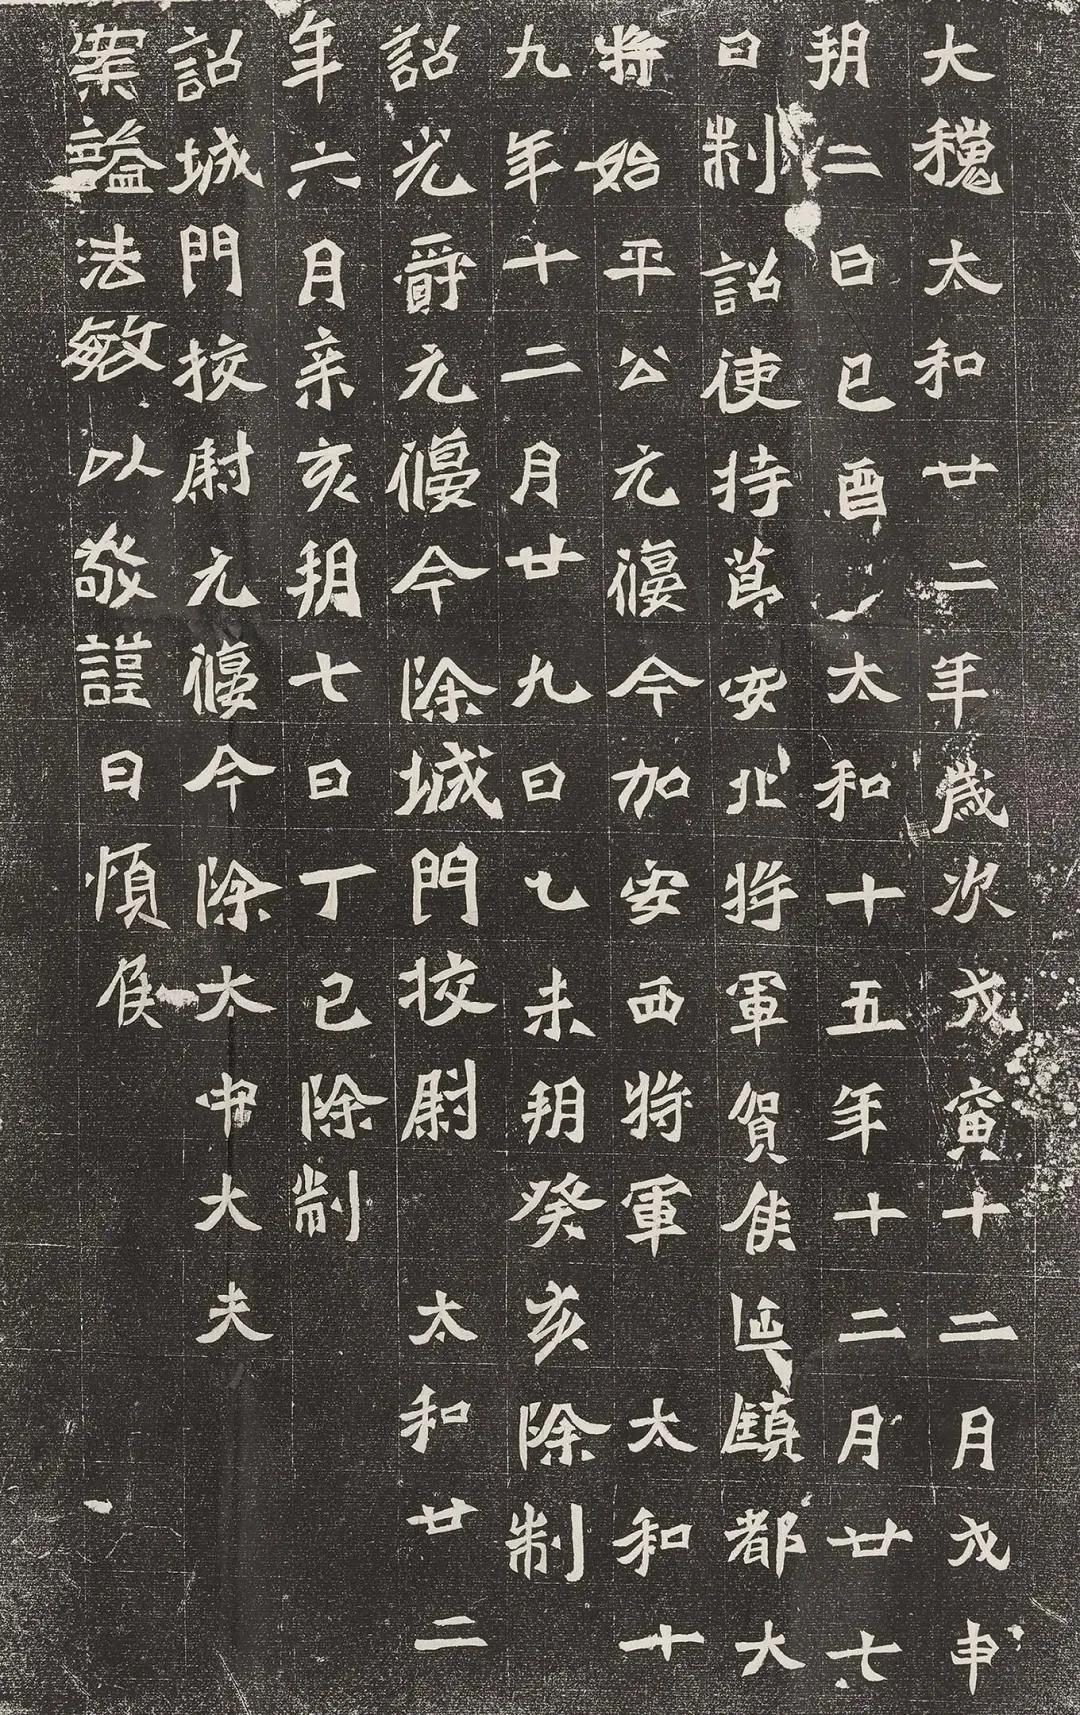 大魏太和廿二年歲次戊寅十二月戊申
朔二日己酉 太和十五年十二月廿七
日制 詔使持節安北將軍賀侯延鎮都大
將始平公元偃今加安西將軍 太和十
九年十二月廿九日乙未朔癸亥除制
詔光爵元偃今除城門挍尉 太和廿二
年六月辛亥朔七日丁巳除制
詔城門挍尉元偃今除太中大夫
案謚法敏以敬謹曰順侯